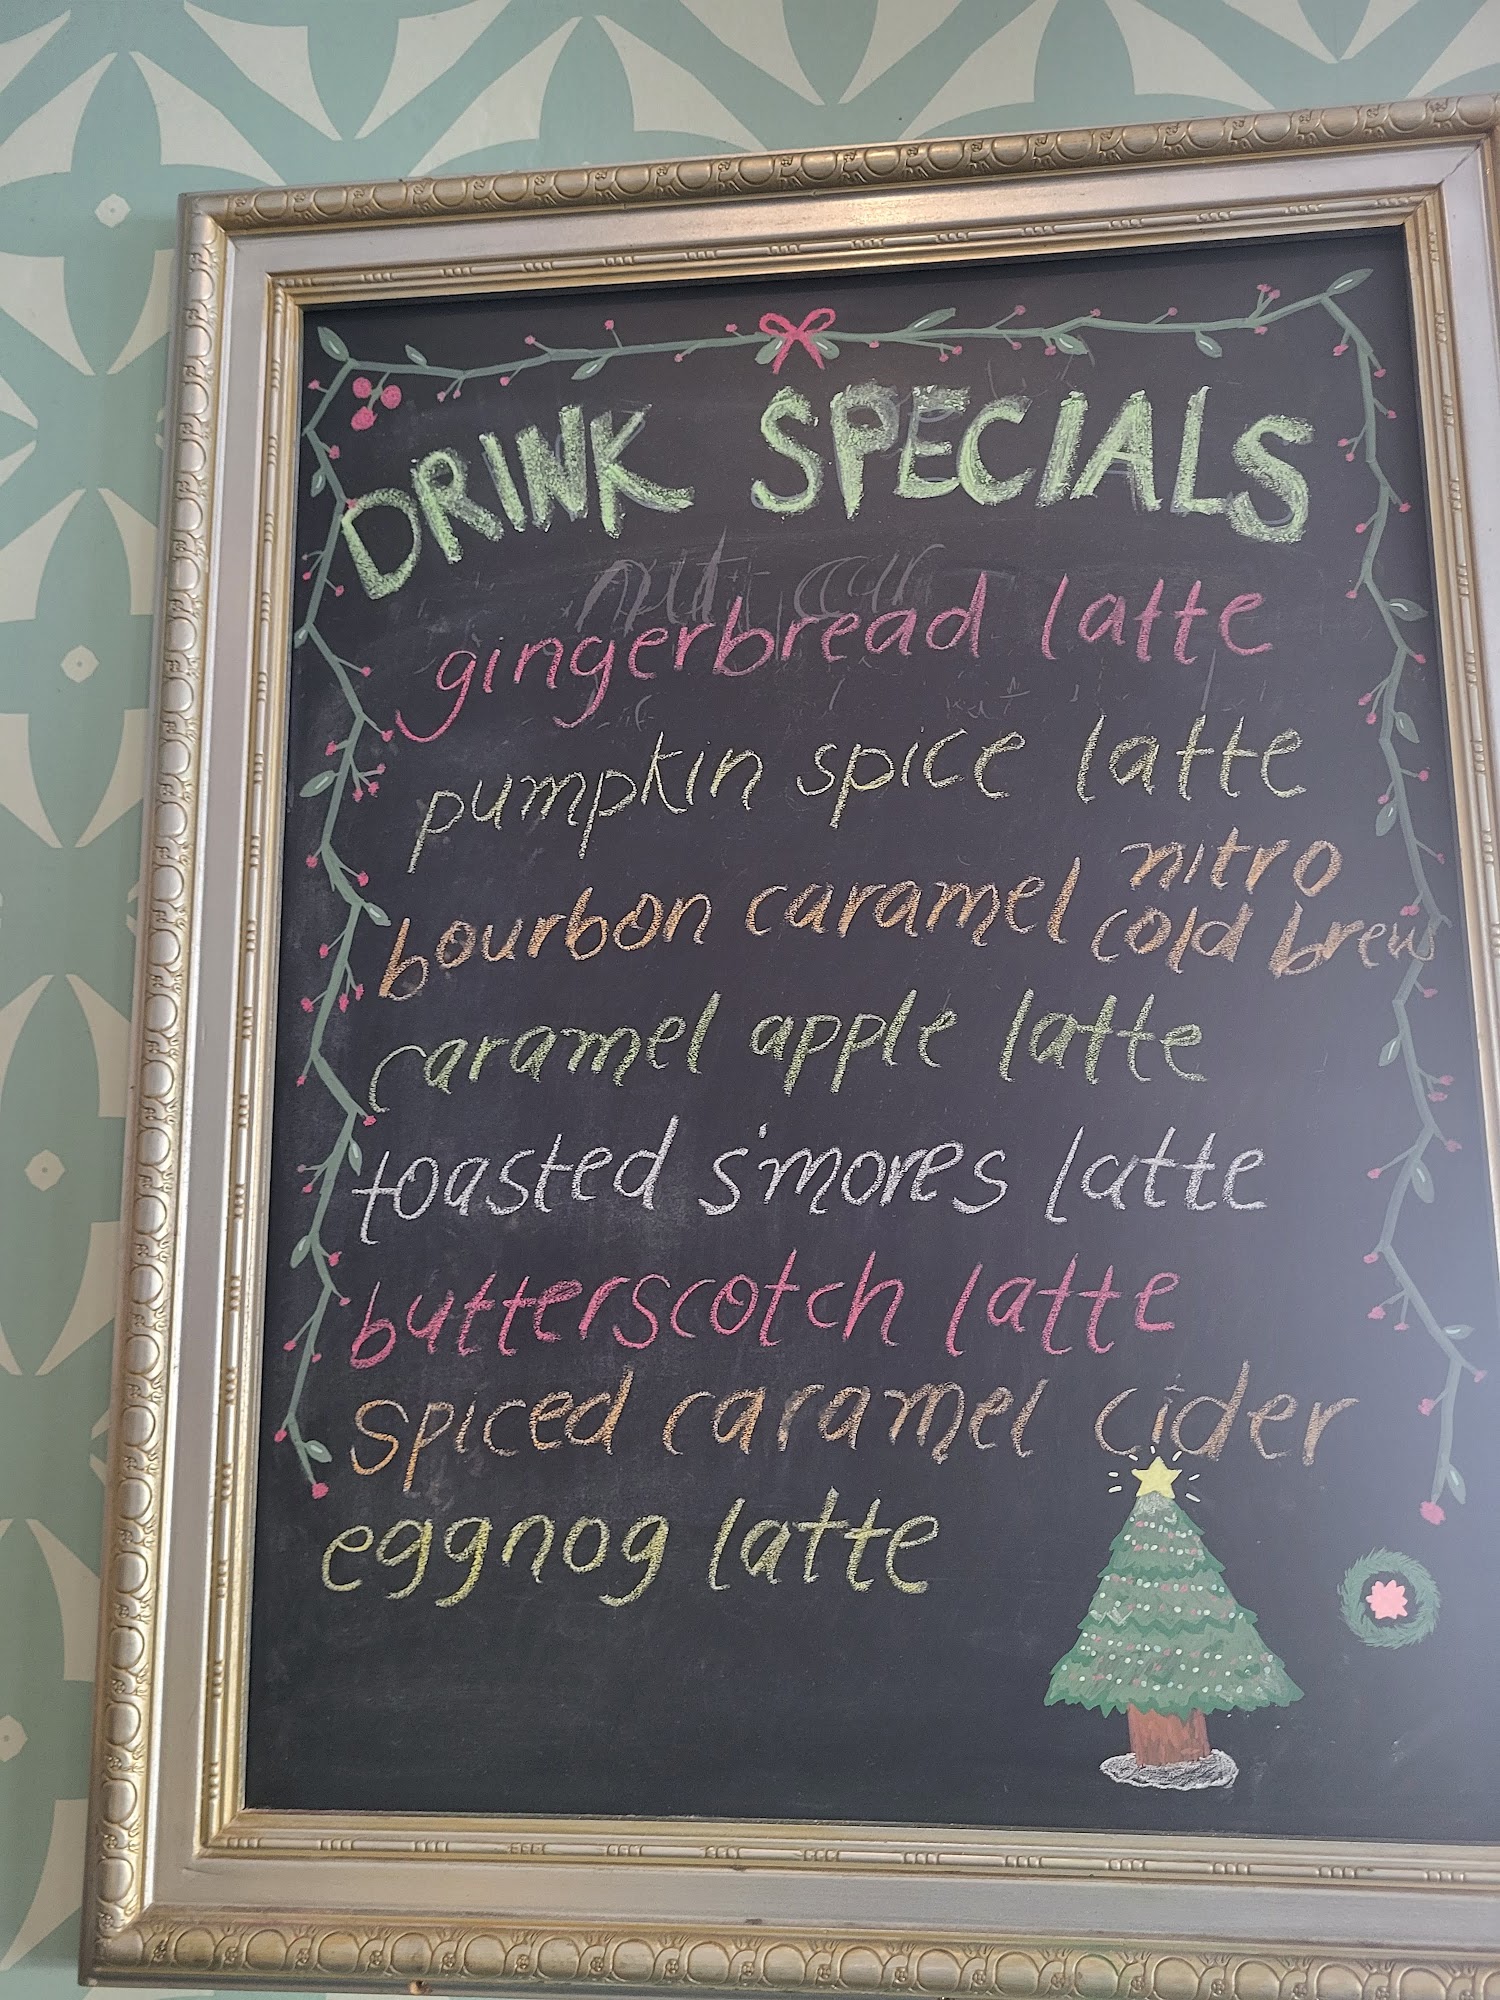 DRINK SPECIALS
gingerbread latte
pumpkin spice latte
bourbon caramel nitro
cold brew
caramel apple latte
toasted s'mores latte
butterscotch latte
spiced caramel cider
eggnog latte